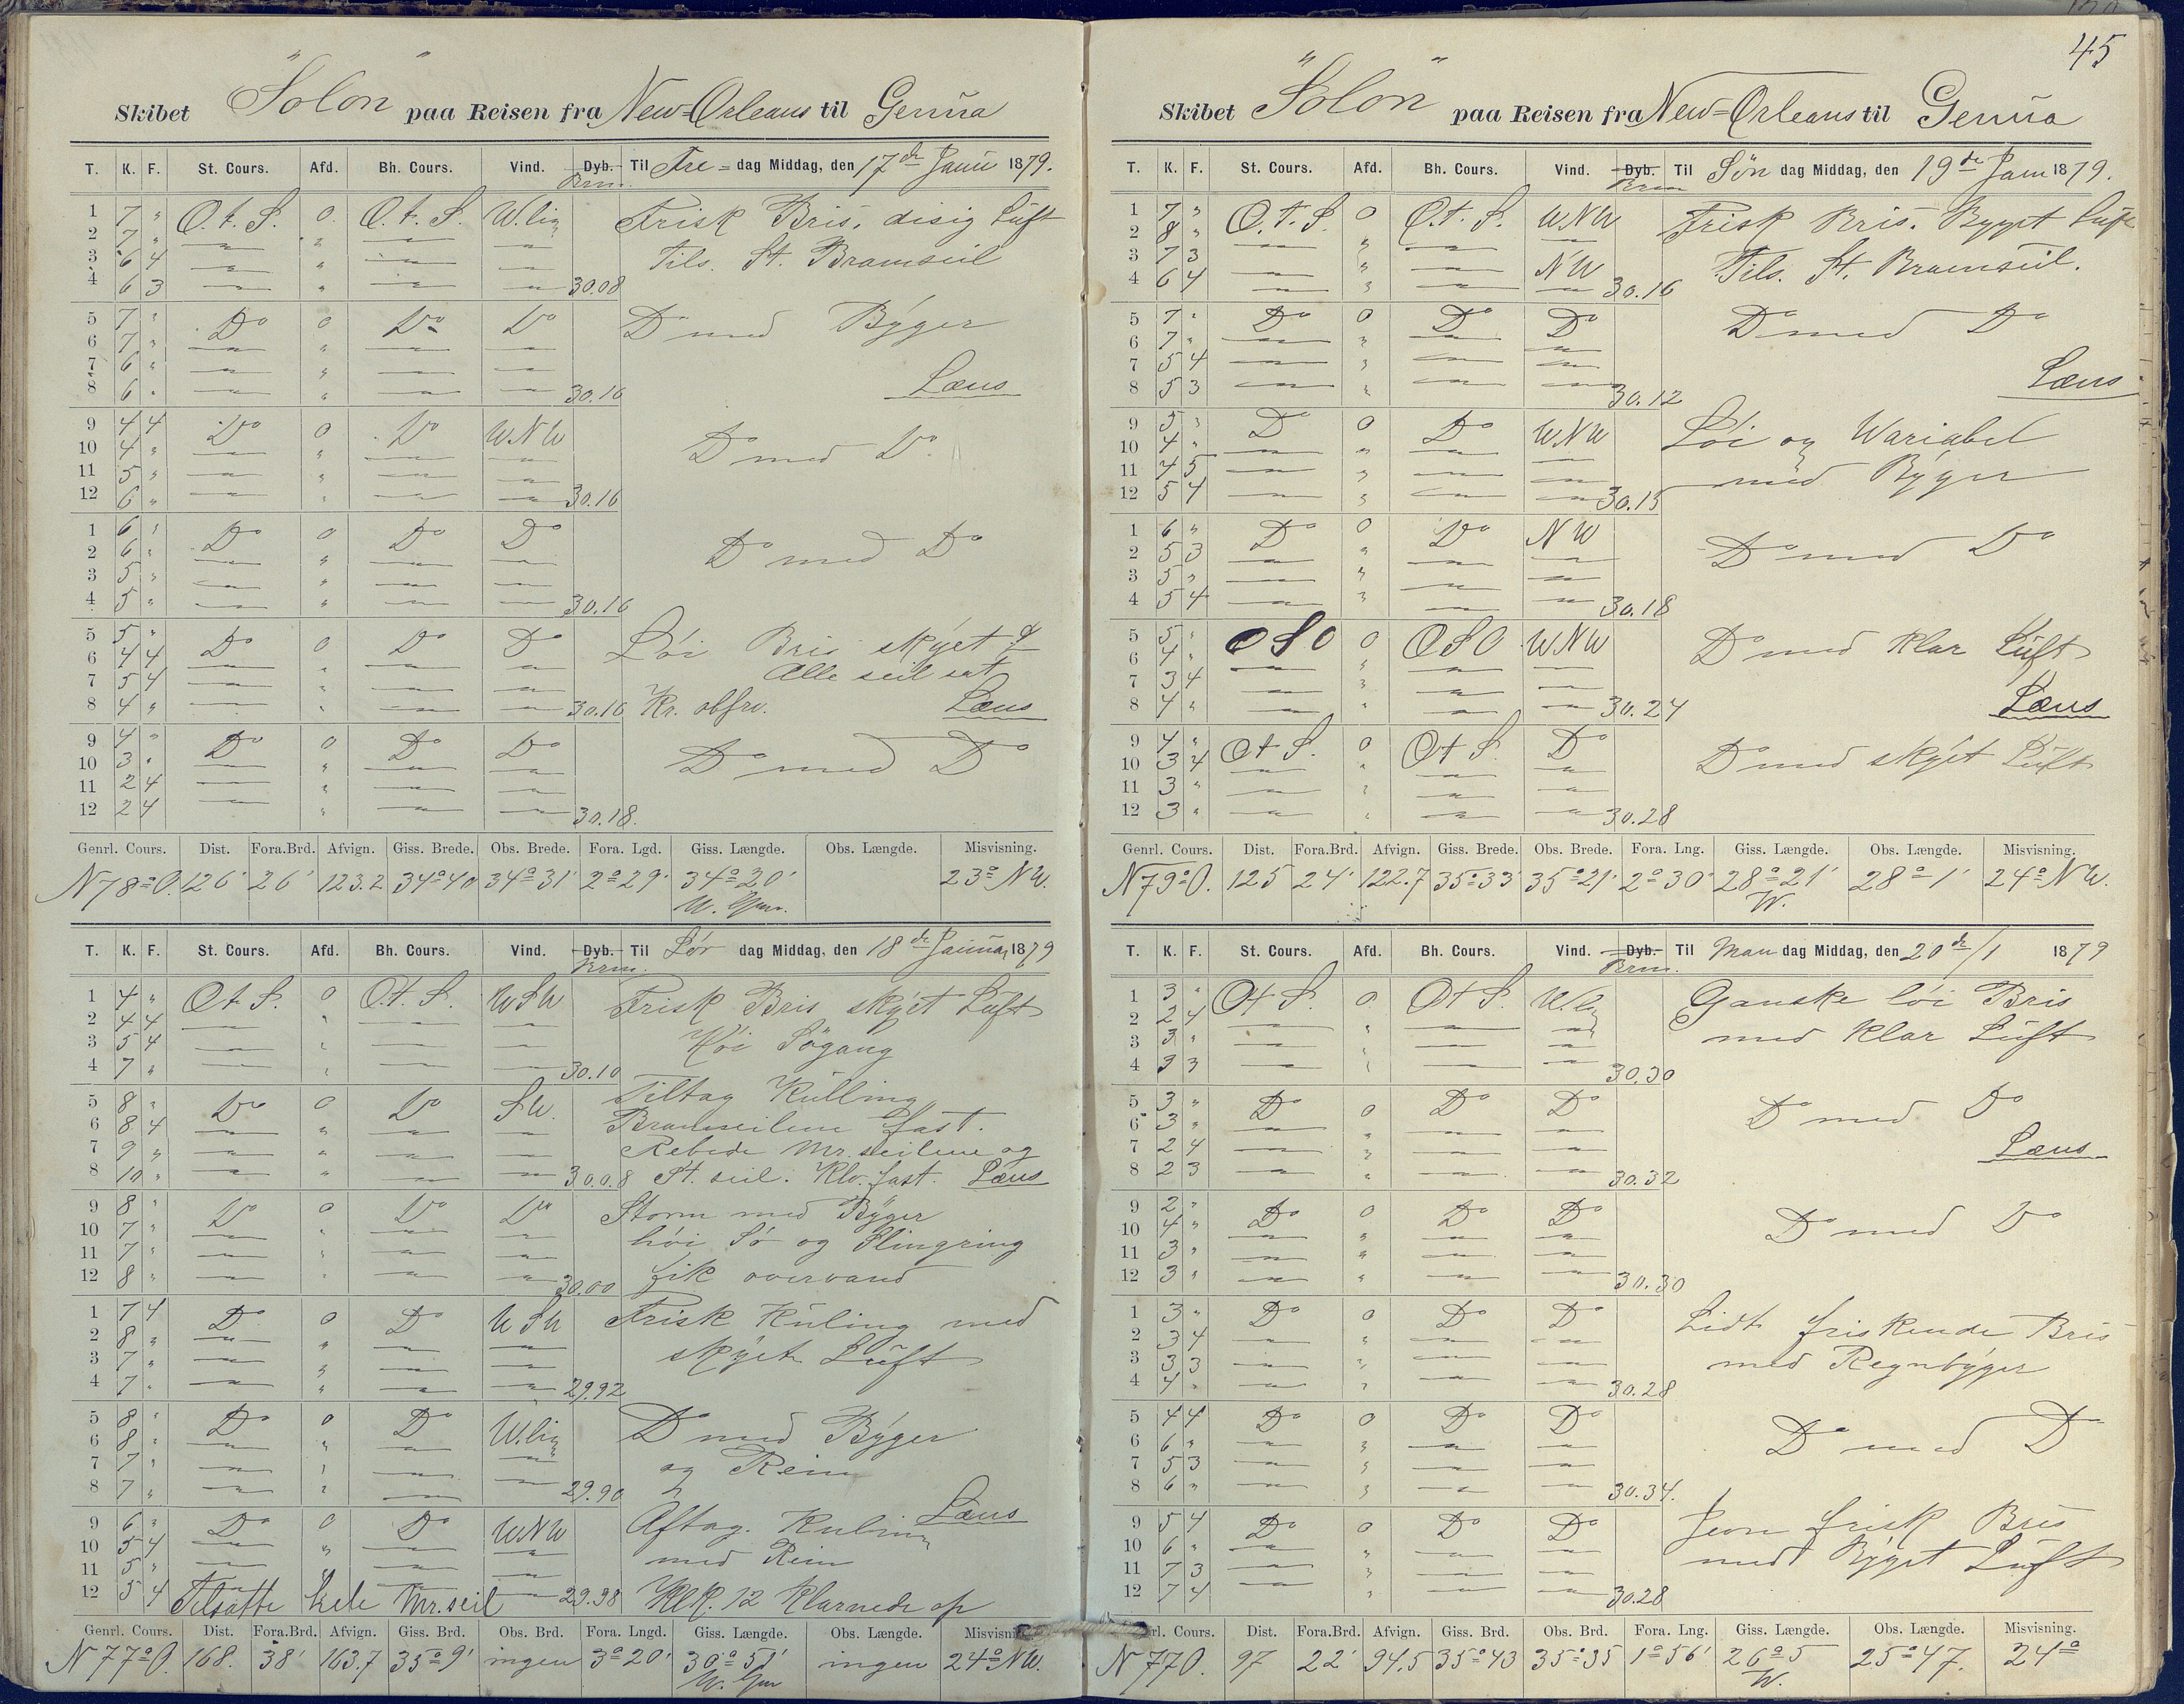 45
Skibet "Solon" paa Reisen fra New-Orleans til Genua
T. K. F. St. Cours. Afd. Bh. Cours. Vind. Dyb. Brm. Til Fre- dag Middag, den 17de Janu 1879.
1 7 " O.t.S. 0 O.t.S. W.lig Frisk Bris, disig Luft
2 7 "
3 6 4 Tils. St. Bramseil
4 6 3 30.08
5 7 " Do 0 Do Do Do med Byger
6 7 "
7 6 "
8 6 " 30.16 Læns
9 4 4 Do 0 Do WNW Do med Do
10 4 "
11 5 "
12 6 " 30.16
1 6 " Do 0 Do Do Do med Do
2 6 "
3 5 "
4 5 " 30.16
5 5 " Do 0 Do Do Løi Bris skyet
6 4 4 Alle seil sat
7 5 4
8 4 " 30.16 Kr. obfrv. Læns
9 4 " Do 0 Do Do Do med Do
10 3 "
11 2 4
12 2 4 30.18
Genrl. Cours. Dist. Fora.Brd. Afvign. Giss. Brede. Obs. Brede. Fora. Lgd. Giss. Længde. Obs. Længde. Misvisning.
N78°O. 126' 26' 123.2 34°40 34°31' 2°29' 34°20' 23° NW.
T. K. F. St. Cours. Afd. Bh. Cours. Vind. Dyb. Brm. Til Lør dag Middag, den 18de Januar 1879
1 4 " OtS. 0 O.t.S. WSW Frisk Bris skyet Luft
2 4 4
3 5 4 Høi Søgang
4 7 " 30.10
5 8 " Do 0 Do SW. Tiltag Kulling
6 8 4 Bramseilene fast.
7 9 " Rebede Mr.seilene og
8 10 " 30.08 St. seil. Klv. fast. Læns
9 8 " Do 0 Do Do Storm med Byger
10 7 " høi Sø og Slingring
11 7 "
12 8 " 30.00 fik overvand
1 7 4 Do 0 Do WSW Frisk Kuling med
2 8 "
3 7 " skyet Luft
4 7 " 29.92
5 8 " Do 0 Do W.lig Do med Byger
6 8 "
7 7 " og Rein
8 7 " 29.90 Læns
9 6 " Do 0 Do WNW Aftag. Kuling
10 5 4 med Rein
11 5 "
12 5 4 Tilsatte hele Mr.seil 29.98 Klk. 12 klarnede op
Genrl. Cours. Dist. Fora.Brd. Afvign. Giss. Brd. Obs. Brd. Fora. Lngd. Giss. Længde. Obs. Længde. Misvisning.
N77°O. 168. 38' 163.7 35°9' ingen 3°20' 30°51' ingen 24° NW.
Skibet "Solon" paa Reisen fra New-Orleans til Genua
T. K. F. St. Cours. Afd. Bh. Cours. Vind. Dyb. Brm Til Søn dag Middag, den 19de Janu 1879.
1 7 " O.t.S. 0 O.t.S. WNW Frisk Bris. Byget Luft
2 8 "
3 7 3 NW Tils. St. Bramseil.
4 6 4 30.16
5 7 " Do 0 Do Do Do med Do
6 7 "
7 5 4
8 5 3 30.12 Læns
9 5 " Do 0 Do WNW Løi og Wariabel
10 4 "
11 4 5 med Byger
12 5 4 30.15
1 6 " Do 0 Do NW Do med Do
2 5 3
3 5 "
4 5 4 30.18
5 5 " OSO 0 OSO WNW Do med klar Luft
6 4 "
7 3 4
8 4 " 30.24 Læns
9 4 " OtS. 0 OtS. Do Do med skyet Luft
10 3 4
11 3 "
12 3 " 30.28
Genrl. Cours. Dist. Fora.Brd. Afvign. Giss. Brede. Obs. Brede. Fora. Lng. Giss. Længde. Obs. Længde. Misvisning.
N79°O. 125 24' 122.7 35°33' 35°21' 2°30' 28°21' W. 28°1' 24° NW.
T. K. F. St. Cours. Afd. Bh. Cours. Vind. Dyb. Brm. Til Man dag Middag, den 20de/1 1879
1 3 " OtS. 0 OtS. W.lig Ganske løi Bris
2 2 4
3 3 " med klar Luft
4 3 3 30.30
5 3 " Do 0 Do Do Do med Do
6 3 "
7 2 4
8 2 3 30.32 Læns
9 2 " Do 0 Do Do Do med Do
10 4 "
11 3 "
12 3 " 30.30
1 3 " Do 0 Do Do Lidt friskende Bris
2 3 4
3 3 3 med Regnbyger
4 4 " 30.28
5 4 4 Do 0 Do Do Do med Do
6 6 "
7 5 3
8 6 " 30.34.
9 5 4 Do 0 Do Do Jevn frisk Bris
10 6 "
11 7 3 med Byget Luft
12 7 4 30.28
rl. Cours. Dist. Fora.Brd. Afvign. Giss. Brd. Obs. Brd. Fora. Lng. Giss. Længde. Obs. Længde. Misvisning.
N77O. 97 22' 94.5 35°43 35°35 1°56' 26°5 W. 25°47. 24°